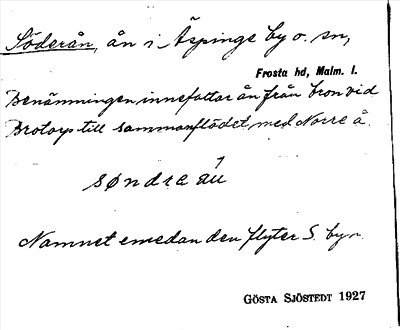 Söderån, ån i Äspinge by o. sn,
Frosta hd, Malm. l.
Benämningen innefattar ån från bron vid
Brotorp till sammanflödet med Norre å.
søndra au
Namnet emedan den flyter S. byn.
GÖSTA SJÖSTEDT 1927